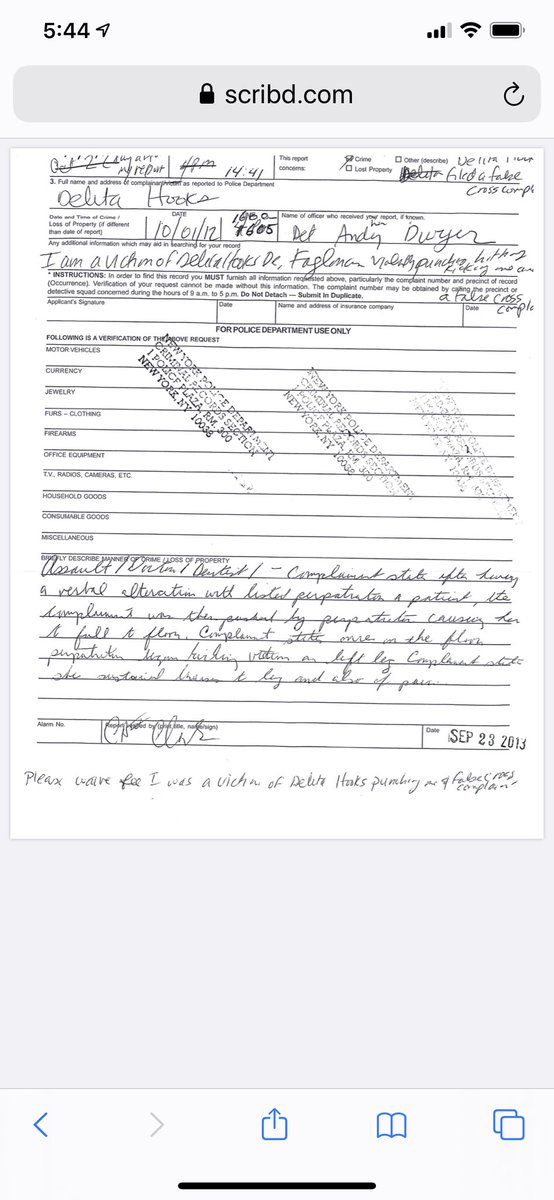 5:44
scribd.com
my report 4pm 14:41
This report concerns: Crime Other (describe)
Lost Property Filed a false
cross compl
3. Full name and address of complainant/victim as reported to Police Department
Delita Hooks
Date and Time of Crime / Loss of Property (if different than date of report)
DATE
10/01/12
Name of officer who received your report, if known.
Det Andy Dwyer
Any additional information which may aid in searching for your record
I am a victim of Delita Hooks Dr. Fagelman violently punching hitting
kicking me
* INSTRUCTIONS: In order to find this record you MUST furnish all information requested above, particularly the complaint number and precinct of record
(Occurrence). Verification of your request cannot be made without this information. The complaint number may be obtained by calling the precinct or
detective squad concerned during the hours of 9 a.m. to 5 p.m. Do Not Detach — Submit In Duplicate.
a false cross
compla
Applicant's Signature Date Name and address of insurance company Date
FOR POLICE DEPARTMENT USE ONLY
FOLLOWING IS A VERIFICATION OF THE ABOVE REQUEST
MOTOR VEHICLES
CURRENCY
JEWELRY
FURS – CLOTHING
FIREARMS
OFFICE EQUIPMENT
T.V., RADIOS, CAMERAS, ETC.
HOUSEHOLD GOODS
CONSUMABLE GOODS
MISCELLANEOUS
NEW YORK POLICE DEPARTMENT
CRIMINAL RECORDS SECTION
1 POLICE PLAZA, RM. 300
NEW YORK, NY 10038
NEW YORK POLICE DEPARTMENT
CRIMINAL RECORDS SECTION
1 POLICE PLAZA, RM. 300
NEW YORK, NY 10038
BRIEFLY DESCRIBE MANNER OF CRIME / LOSS OF PROPERTY
Assault / Doctor / Dentist / - Complainant states after having
a verbal altercation with listed perpetrator a patient, the
complainant was then pushed by perpetrator causing her
to fall to floor. Complainant states once on the floor
perpetrator began kicking victim on left leg Complainant states
she sustained bruises to leg and also of pain
Alarm No.
Report verified by (print title, name/sign)
Date SEP 23 2013
Please waive fee I was a victim of Delita Hooks punching me & false cross
complain